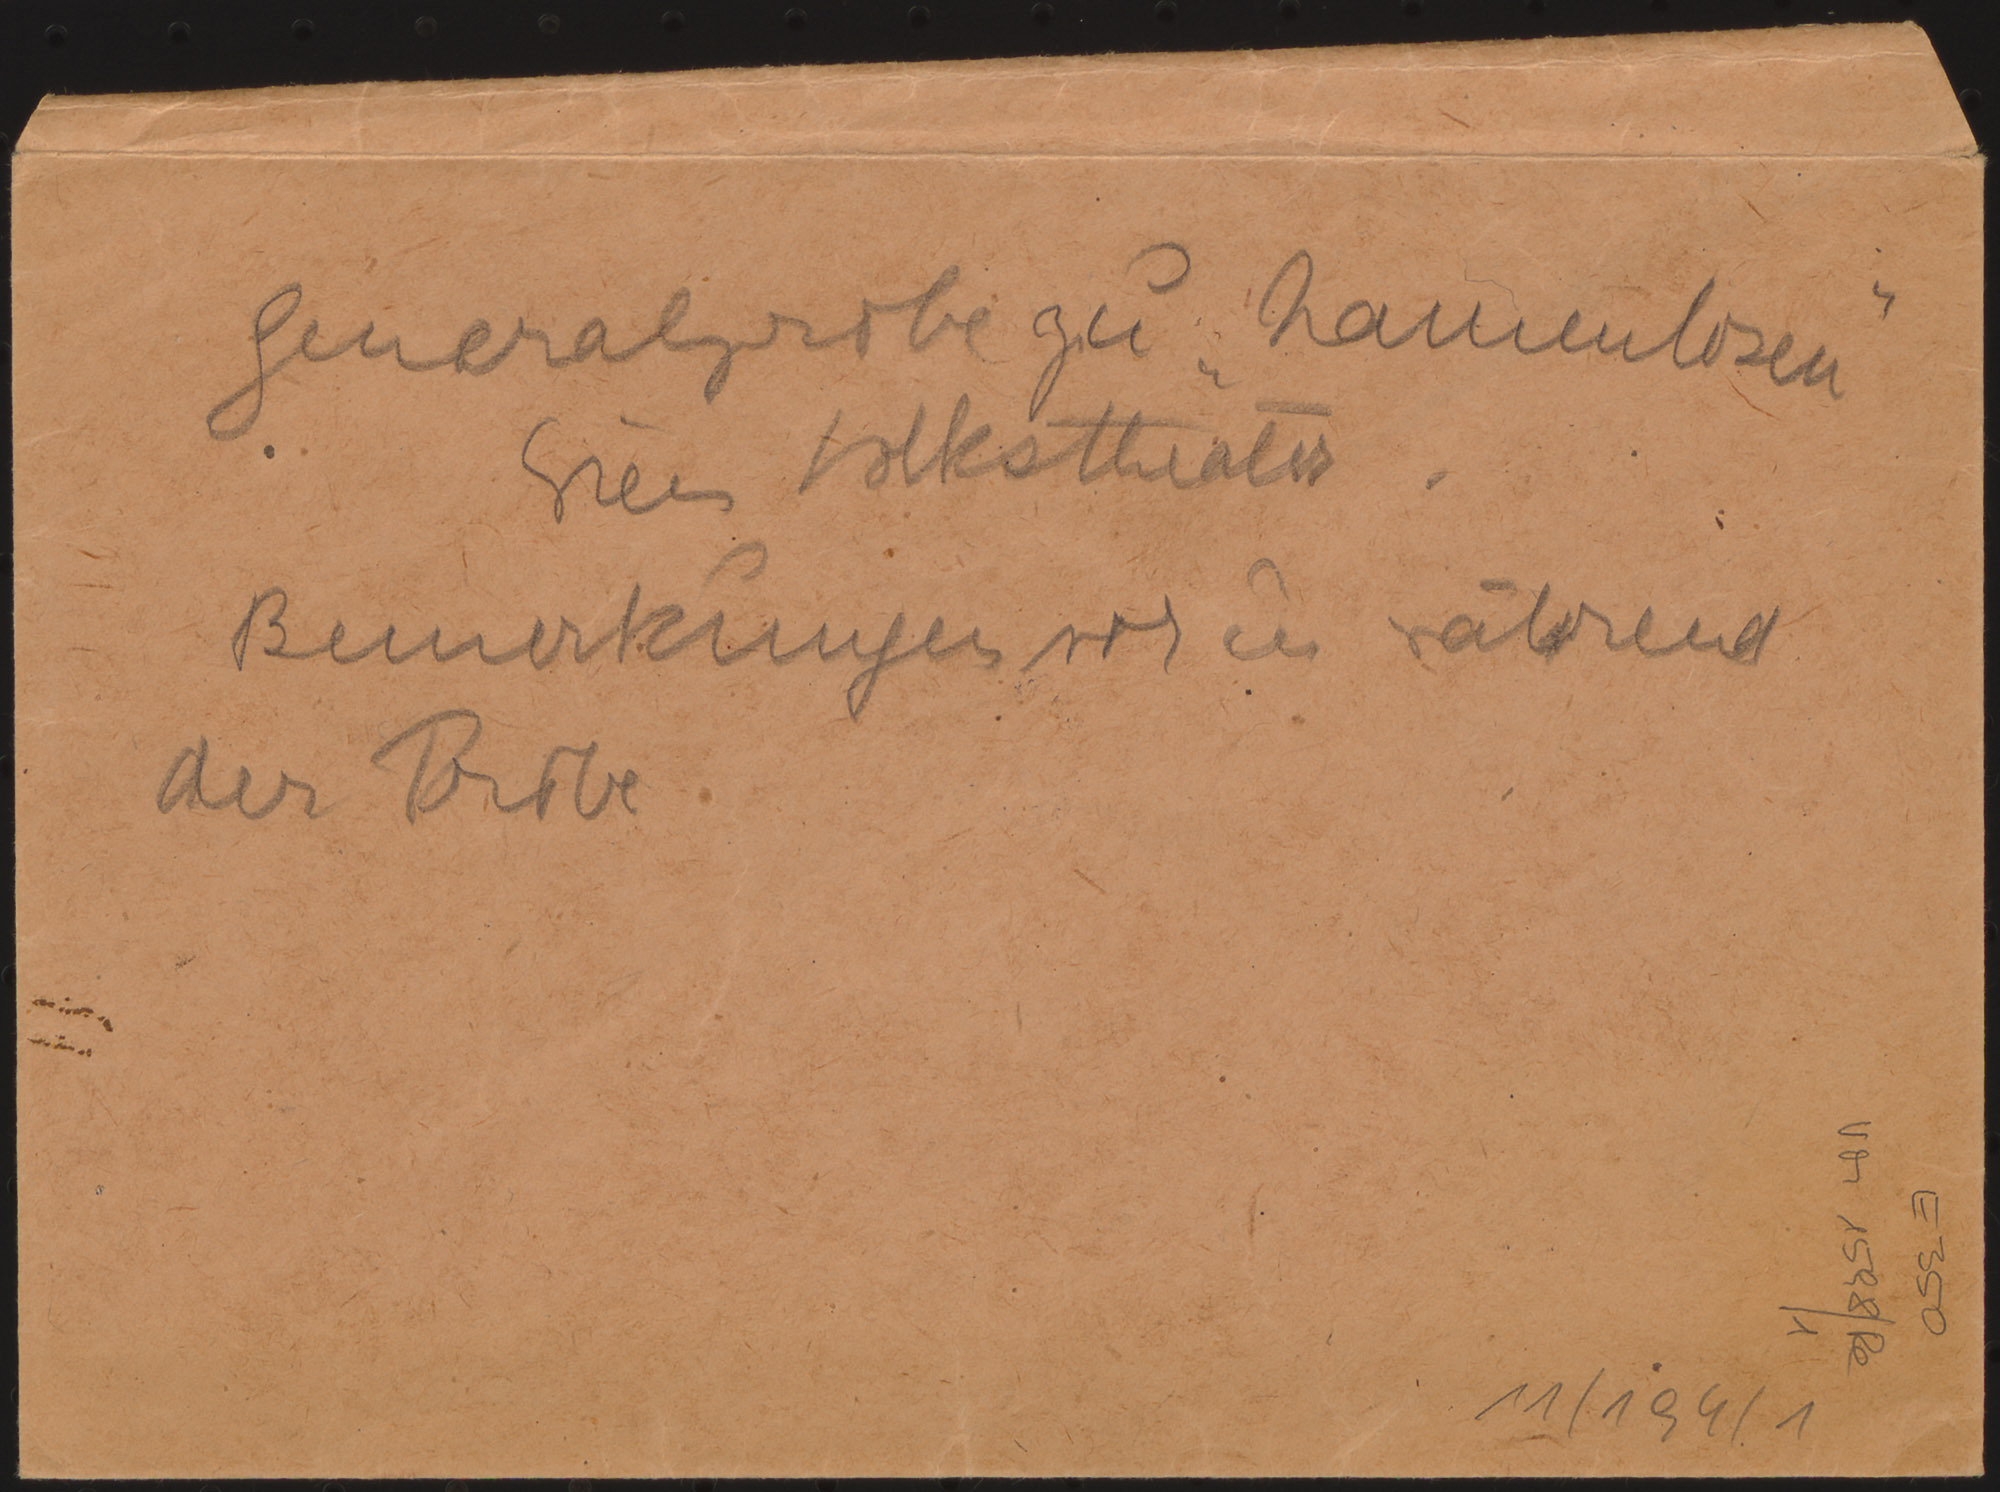 Generalprobe zu „Namenlosen“
Wien Volkstheater.
Bemerkungen vor u während
der Probe
11/194/1
E 350